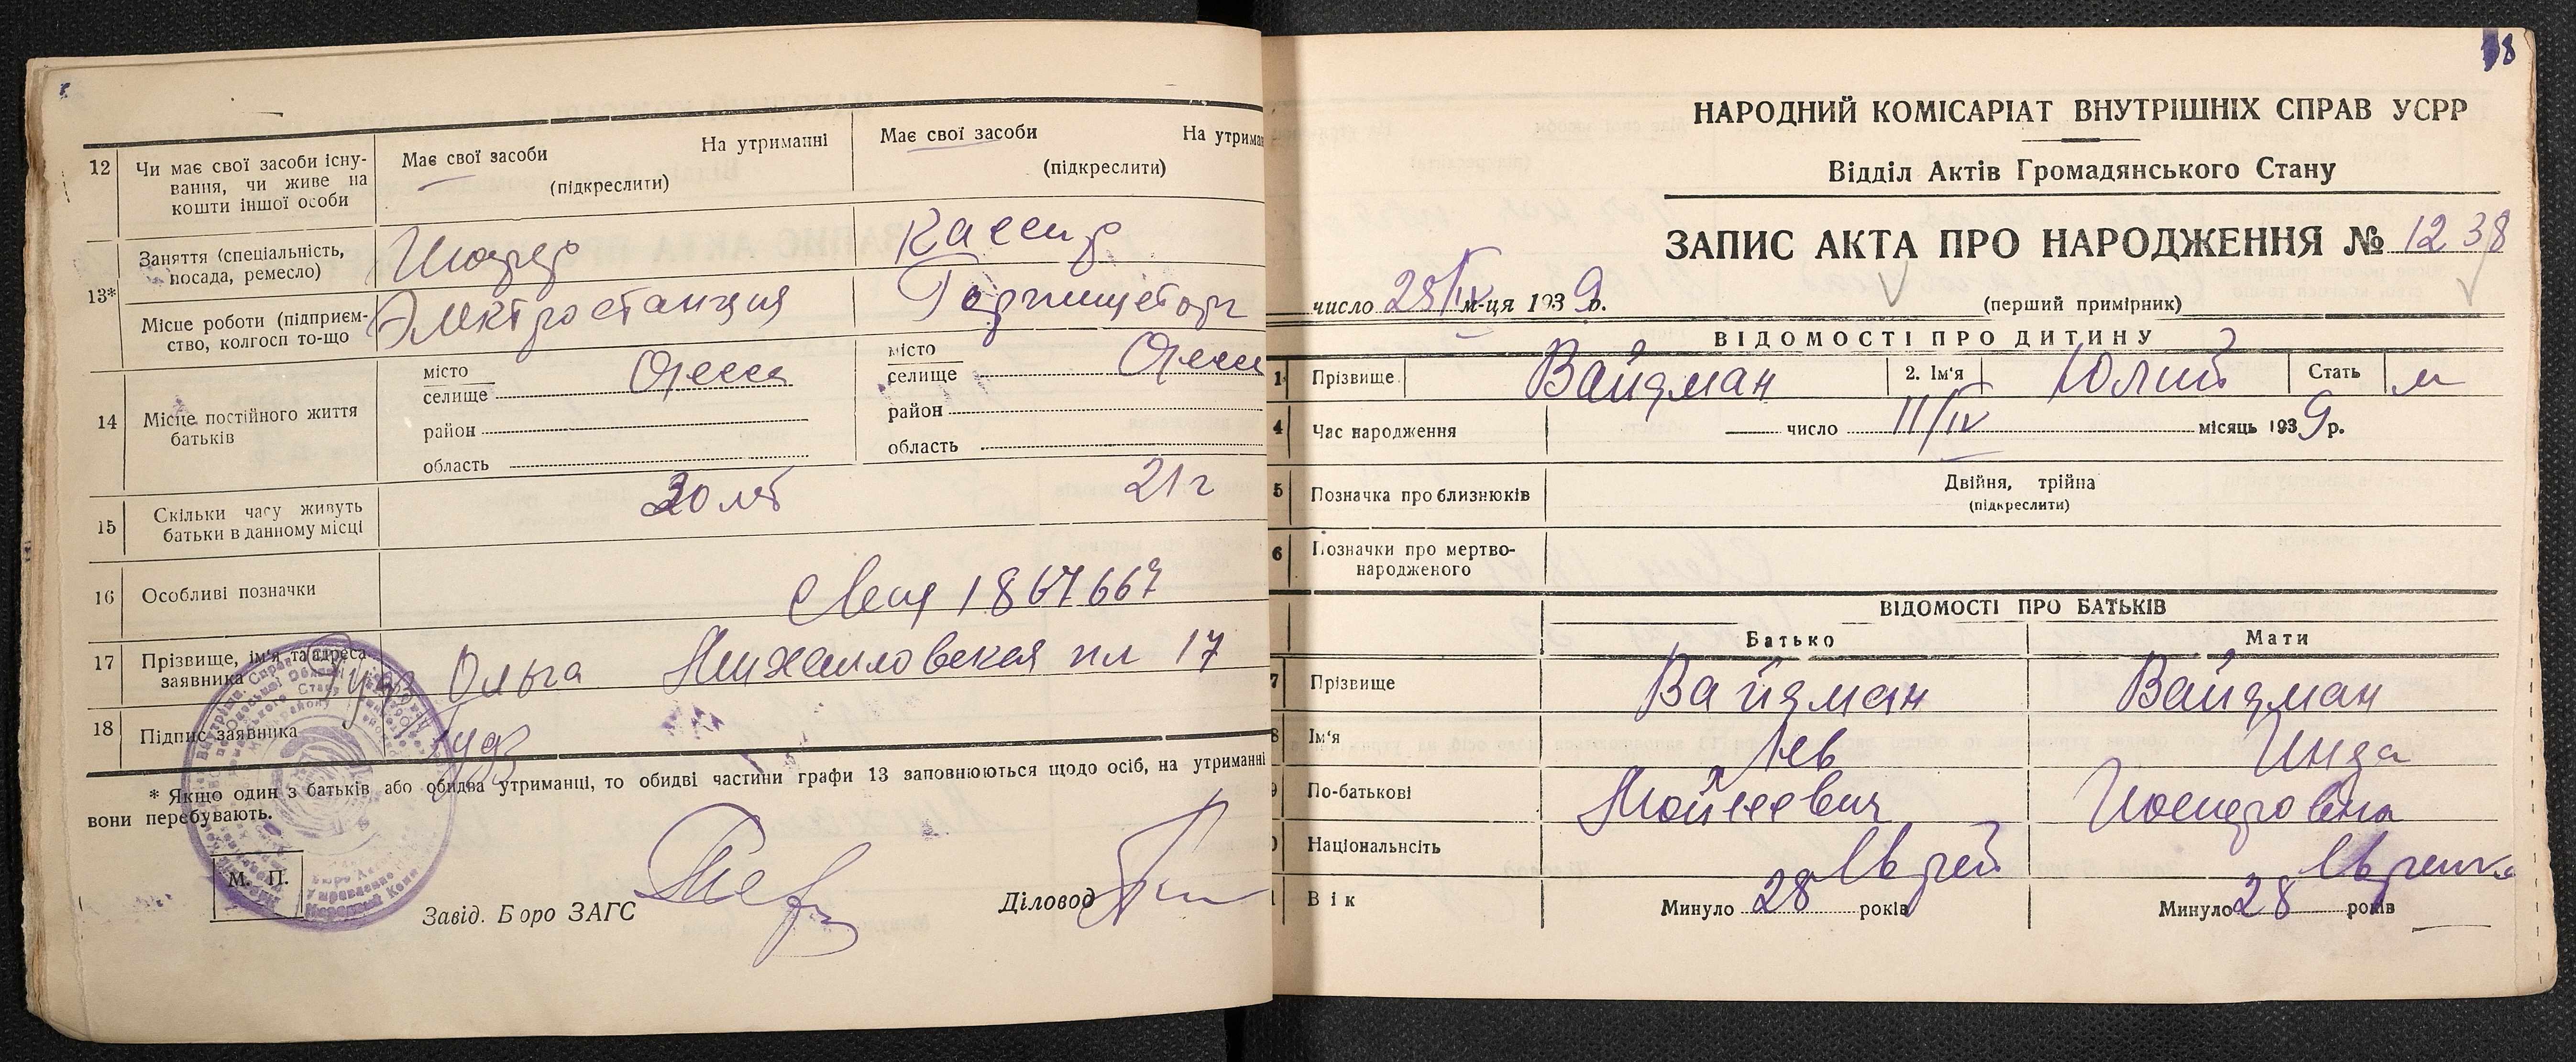 12
Чи має свої засоби існу-
вання, чи живе на
кошти іншої особи
Має свої засоби
На утриманні
(підкреслити)
Має свої засоби
На утриман
(підкреслити)
13*
Заняття (спеціальність,
посада, ремесло)
Шофер
Кассир
Місце роботи (підприєм-
ство, колгосп то-що
Электростанция
Горпищеторг
14
Місце постійного життя
батьків
місто
селище
Одесса
район
область
місто
селище
Одесс
район
область
15
Скільки часу живуть
батьки в данному місці
30 лет
21 г
16
Особливі позначки
1867667
17
Прізвище, ім'я та адреса
заявника
Ольга Михайловская пл 17
18
Підпис заявника
* Якщо один з батьків або обидва утриманці, то обидві частини графи 13 заповнюються щодо осіб, на утриманні
вони перебувають.
М. П.
Завід. Бюро ЗАГС
Діловод
18
НАРОДНИЙ КОМІСАРІАТ ВНУТРІШНІХ СПРАВ УСРР
Відділ Актів Громадянського Стану
ЗАПИС АКТА ПРО НАРОДЖЕННЯ № 1238
число 28/IV м-ця 1939 р.
(перший примірник)
ВІДОМОСТІ ПРО ДИТИНУ
1
Прізвище
Вайдман
2. Ім'я
Юлий
Стать
м
4
Час народження
число 11/IV місяць 1939 р.
5
Позначка про близнюків
Двійня, трійна
(підкреслити)
6
Позначки про мертво-
народженого
ВІДОМОСТІ ПРО БАТЬКІВ
Батько
Мати
7
Прізвище
Вайдман
Вайдман
8
Ім'я
Лев
Инда
9
По-батькові
Мойсеевич
Иосифовна
Національнсіть
Еврей
Еврейка
Вік
Минуло 28 років
Минуло 28 років